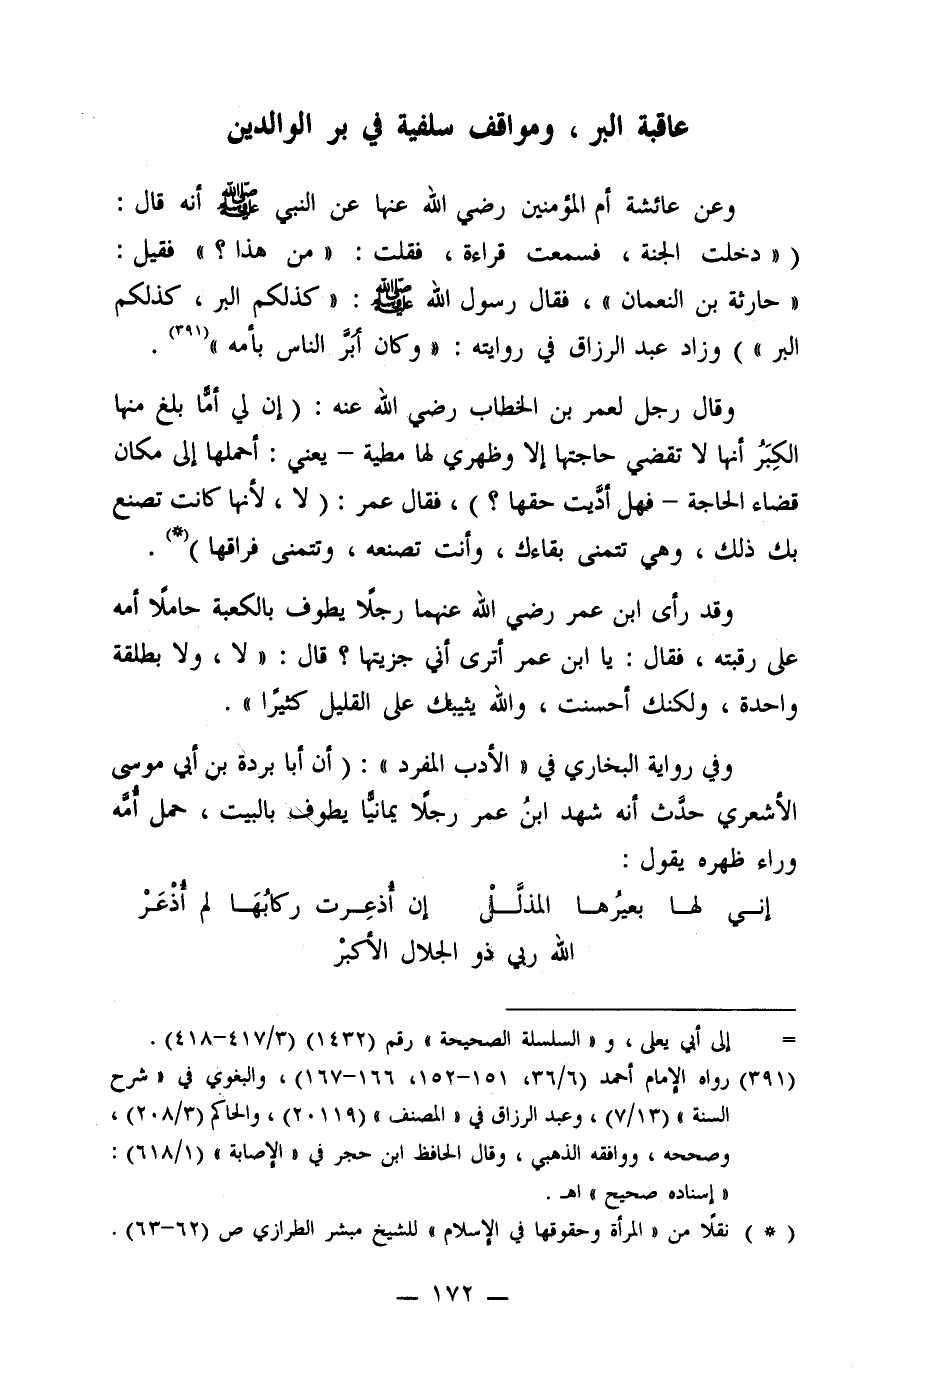 عاقبة البر ، ومواقف سلفية في بر الوالدين
وعن عائشة أم المؤمنين رضي الله عنها عن النبي ﷺ أنه قال :
( « دخلت الجنة ، فسمعت قراءة ، فقلت : « من هذا ؟ » فقيل :
« حارثة بن النعمان » ، فقال رسول الله ﷺ : « كذلكم البر ، كذلكم
البر » ) وزاد عبد الرزاق في روايته : « وكان أبَرَّ الناس بأمه »(٣٩١) .
وقال رجل لعمر بن الخطاب رضي الله عنه : ( إن لي أمًّا بلغ منها
الكِبَرُ أنها لا تقضي حاجتها إلا وظهري لها مطية – يعني : أحملها إلى مكان
قضاء الحاجة – فهل أدَّيت حقها ؟ ) ، فقال عمر : ( لا ، لأنها كانت تصنع
بك ذلك ، وهي تتمنى بقاءك ، وأنت تصنعه ، وتتمنى فراقها )(*) .
وقد رأى ابن عمر رضي الله عنهما رجلًا يطوف بالكعبة حاملًا أمه
على رقبته ، فقال : يا ابن عمر أترى أني جزيتها ؟ قال : « لا ، ولا بطلقة
واحدة ، ولكنك أحسنت ، والله يثيبك على القليل كثيرًا » .
وفي رواية البخاري في « الأدب المفرد » : ( أن أبا بردة بن أبي موسى
الأشعري حدَّث أنه شهد ابنُ عمر رجلًا يمانيًّا يطوف بالبيت ، حمل أُمَّه
وراء ظهره يقول :
إنــي لهــا بعيرُهــا المذلَّــلْ إن أُذعِــرت ركابُهَــا لم أُذْعَــرْ
الله ربي ذو الجلال الأكبرْ
= إلى أبي يعلى ، و « السلسلة الصحيحة » رقم (١٤٣٢) (٤١٧/٣–٤١٨) .
(٣٩١) رواه الإمام أحمد (٣٦/٦، ١٥١–١٥٢، ١٦٦–١٦٧) ، والبغوي في « شرح
السنة » (٧/١٣) ، وعبد الرزاق في « المصنف » (٢٠١١٩) ، والحاكم (٢٠٨/٣) ،
وصححه ، ووافقه الذهبي ، وقال الحافظ ابن حجر في « الإصابة » (٦١٨/١) :
« إسناده صحيح » اهـ .
( * ) نقلًا من « المرأة وحقوقها في الإسلام » للشيخ مبشر الطرازي ص (٦٢–٦٣) .
— ١٧٢ —